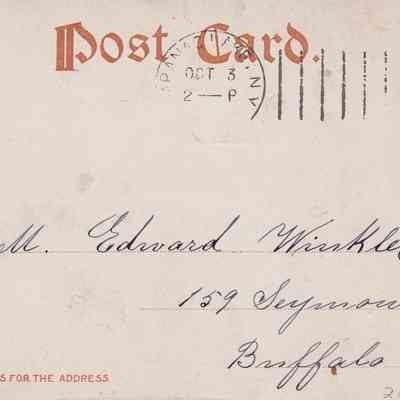 Post Card.
OCT 3
2 — P
N.Y.
M. Edward Winkle
159 Seymou
Buffalo
S FOR THE ADDRESS